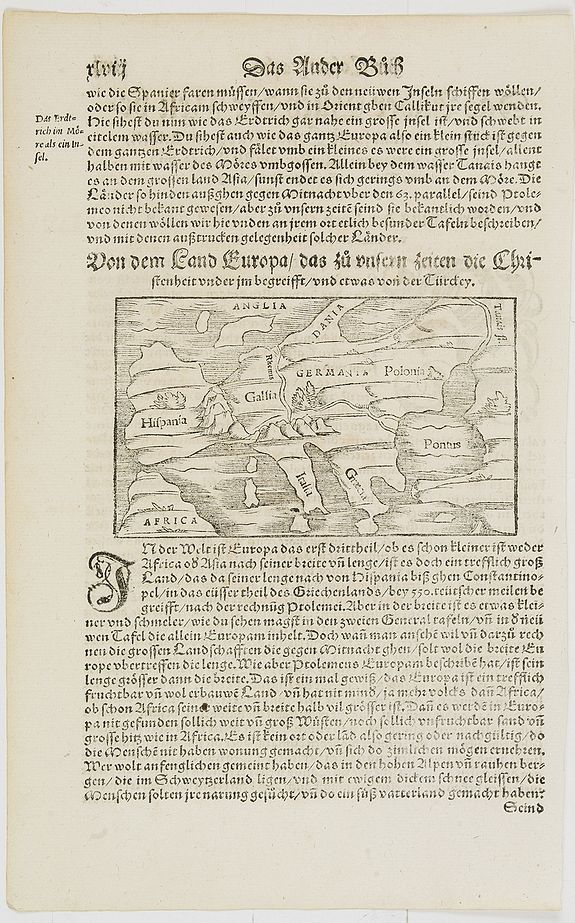 xlviij Das Ander Bůch
wie die Spanier faren müssen/wann sie zů den neüwen Inseln schiffen wöllen/
oder so sie in Africam schweyffen/vnd in Orient gben Callikut jre segel wenden.
Hie sihest du nun wie das Erdtrich gar nahe ein grosse insel ist/vnd schwebt in
Das Erdt-
rich im Mö-
re als ein In-
sel.
eitelem wasser. Du sihest auch wie das gantz Europa also ein klein stuck ist gegen
dem gantzen Erdtrich/vnd fälet vmb ein kleines es were ein grosse jnsel/allent
halben mit wasser des Möres vmbgossen. Allein bey dem wasser Tanais hangt
es an dem grossen land Asia/sunst endet es sich gerings vmb an dem Möre. Die
Länder so hinden außhen gegen Mitnacht vber den 63. parallel/seind Ptole-
meo nicht bekant gewesen/aber zů vnsern zeitē seind sie bekantlich worden/vnd
von denen wöllen wir hie vnden an jrem ort etlich besunder Tafeln beschreiben/
vnd mit denen außtrucken gelegenheit solcher Länder.
Von dem Land Europa/das zů vnsern zeiten die Chri-
stenheit vnder jm begreifft/vnd etwas von der Türckey.
ANGLIA
DANIA
Tanais fl.
Rhenus
GERMANIA
Polonia
Gallia
Hispania
Pontus
Italia
Grecia
AFRICA
IN der Welt ist Europa das erst drittheil/ob es schon kleiner ist weder
Africa oď Asia nach seiner breite vñ lenge/ist es doch ein trefflich groß
Land/das da seiner lenge nach von Hispania biß ghen Constantino-
pel/in das eüsser theil des Griechenlands/bey 550. teütscher meilen be
greifft/nach der rechnūg Ptolemei. Aber in der breite ist es etwas klei-
ner vnd schmeler/wie du sehen magst in den zweien General tafeln/vñ in ď neü
wen Tafel die allein Europam inhelt. Doch wañ man ansehē wil vñ darzů rech
nen die grossen Landschafften die gegen Mitnacht ghen/solt wol die breite Eu
rope vbertreffen die lenge. Wie aber Ptolemeus Europam beschribē hat/ist sein
lenge grösser dann die breite. Das ist ein mal gewiß/das Europa ist ein trefflich
fruchtbar vñ wol erbauwē Land/vñ hat nit mind/ja mehr volcks dañ Africa/
ob schon Africa seiner weite vñ breite halb vil grösser ist. Dañ es werdē in Euro-
pa nit gefunden sollich weit vñ groß Wůsten/noch sollich vnfruchtbar sand vñ
grosse hitz wie in Africa. Es ist kein ort oder läd also gering oder nachgültig/do
die Menschē nit haben wonung gemacht/vñ sich do zimlichen mögen ernehren.
Wer wolt anfenglichen gemeint haben/das in den hohen Alpen vñ rauhen ber-
gen/die im Schweytzerland ligen/vnd mit ewigem dickem schnee gleissen/die
Menschen solten jre narung gesůcht/vñ do ein sůß vatterland gemacht haben?
Seind